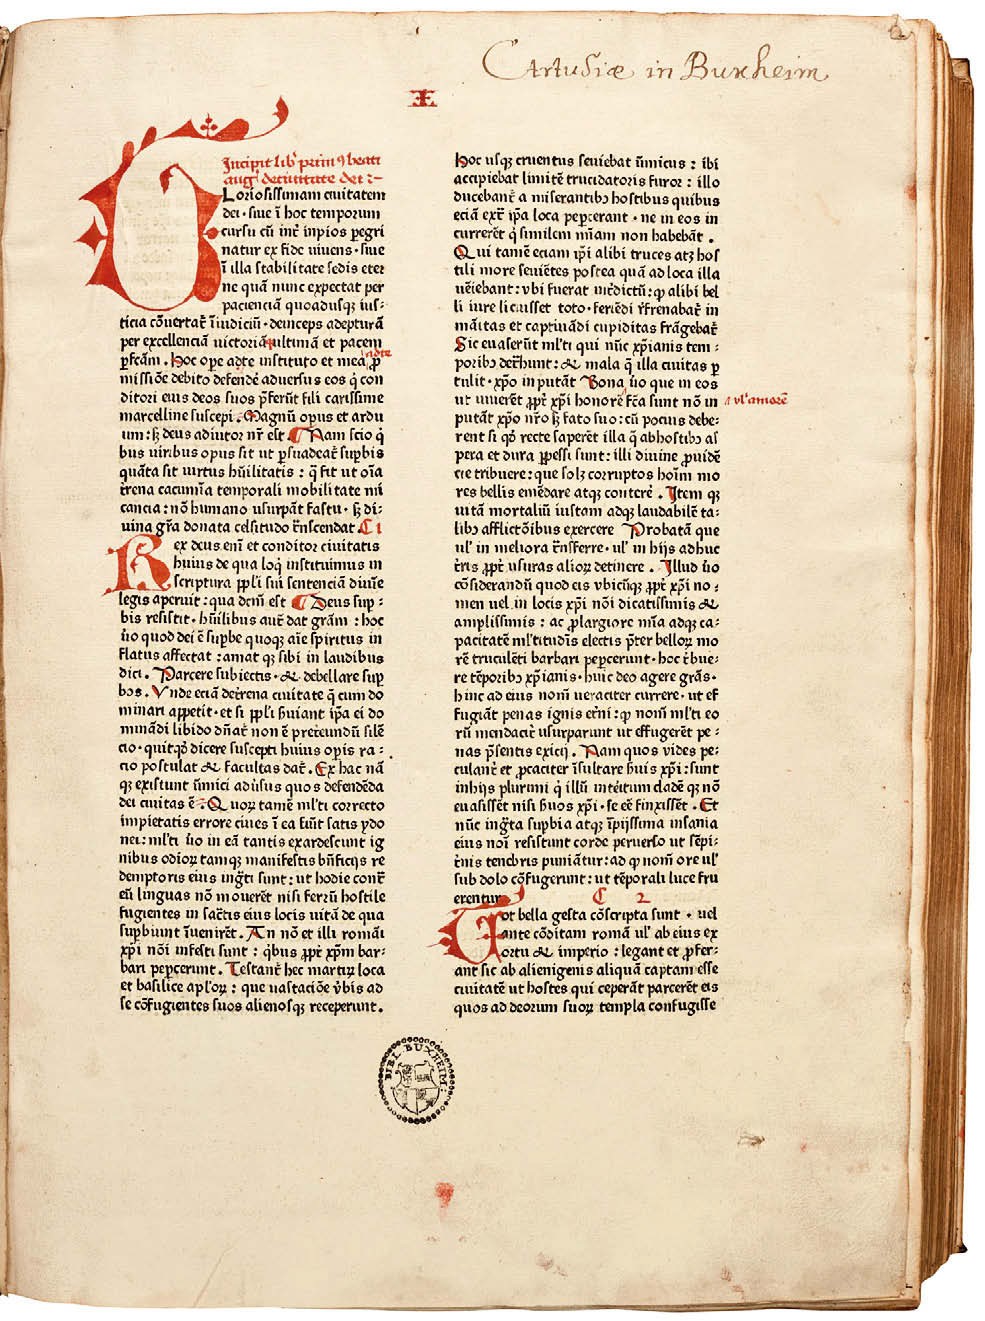 Cartusiæ in Buxheim
I
Incipit lib' prim9 beati
aug' de ciuitate dei :~
Loriosissimam ciuitatem
dei · siue ī hoc temporum
cursu cū int̄ inpios peregri
natur ex fide uiuens · siue
ī illa stabilitate sedis eter
ne quā nunc expectat per
pacienciā quoadusqꝫ ius:
ticia cōuertat̄ ī iudiciū · deinceps adepturā
per excellenciā uictoriā ultimā et pacem
ꝑfcām . Hoc oꝑe a te instituto et mea ꝓ
missiōe debito defendē adversus eos q̇ con
ditori eius deos suos p̄ferūt fili carissime
marcelline suscepi . Magnū opus et ardu
um : sꝫ deus adiutor nr̄ est . Nam scio q̇
bus uiribus opus sit ut ꝑsuadeat̄ suꝑbis
quāta sit uirtus hūilitatis : q̄ fit ut oīa
t̄rena cacumīa temporali mobilitate nu
cancia : nō humano usurpāt fastu · sꝫ di:
uina gr̄a donata celsitudo t̄nscendat . C 1
Rex deus enī et conditor ciuitatis
huius de qua loq̇ instituimus in
scriptura ppl'i sui sentenciā diuīe
legis aperuit : qua dcm̄ est Deus sup :
bis resistit · hūilibus aut̄ dat grām : hoc
ūo quod dei ē suꝑbe quoqꝫ aīe spiritus in
flatus affectat : amat qꝫ sibi in laudibus
dici . Parcere subiectis · & debellare suꝑ
bos . Vnde eciā de t̄rena ciuitate q̄ cum do
minari appetit · et si ppl'i ẛuiant ip̄a ei do
minādi libido dn̄at̄ non ē pret̄eundū silē
cio · quitqͩ dicere suscepti huius oꝑis ra :
cio postulat & facultas dat̄ . Ex hac nā
qꝫ existunt ūmici aduīsus quos defendēda
dei ciuitas ē . Quoꝝ tamē ml'ti correcto
impietatis errore ciues ī ea fiūt satis ydo
nei : ml'ti ūo in eā tantis exardescunt ig
nibus odioꝝ tamqꝫ manifestis bn̄ficijs re
demptoris eius inġti sunt : ut hodie cont̄
eū linguas nō mouerēt nisi ferrū hostile
fugientes in sac̄tis eius locis uitā de qua
suꝑbiunt īuenirēt . An nō et illi romāi
xp̄i nōi infesti sunt : q̇bus ꝓpt̄ xp̄m bar:
bari peꝑcerunt . Testant̄ hec martiꝝ loca
et basilice apl'oꝝ : que uastaciōe v̄bis ad
se cōfugientes suos alienosqꝫ receperunt .
Hoc usqꝫ cruentus seuiebat īimicus : ibi
accipiebat limitē trucidatoris furor : illo
ducebant̄ a miserantibꝫ hostibus quibus
eciā ext̄ ip̄a loca peꝑcerant · ne in eos in
currerēt q̇ similem mīam non habebāt .
Qui tamē eciam ip̄i alibi truces atꝫ hos
tili more seuiētes postea quā ad loca illa
uēiebant : vbi fuerat int̄dictū : qͩ alibi bel
li iure licuisset toto · feriēdi r̄frenabat̄ in
māitas et captiuādi cupiditas frāgebat̄
Sic euaserūt ml'ti qui nūc xp̄ianis tem :
poribꝫ det̄hunt : & mala q̄ illa ciuitas ꝑ
tulit · xp̄o inputāt Bona ūo que in eos
ut uiuerēt ꝓpt̄ xp̄i honorē fc̄a sunt nō in
vl' amorē
putāt xp̄o nr̄o sꝫ fato suo : cū pocius debe:
rent si qͩ recte saperēt illa q̄ ab hostibꝫ as
pera et dura ꝑpessi sunt : illi diuine ꝓuidē
cie tribuere : que solꝫ corruptos hoīm mo
res bellis emēdare atqꝫ contere̅ . Item qꝫ
uitā mortaliū iustam adqꝫ laudabilē ta:
libꝫ afflictōibus exercere Probatā que
ul' in meliora t̄nsferre · ul' in hijs adhuc
t̄ris ꝓpt̄ usuras alioꝝ detinere . Illud ūo
cōsiderandū quod eis vbicūqꝫ ꝓpt̄ xp̄i no :
men uel in locis xp̄i nōi dicatissimis &
amplissimis : ac ꝓ largiore mīa adqꝫ ca:
pacitatē ml'titudīs electis p̄ter belloꝝ mo
rē truculēti barbari peꝑcerunt · hoc t̄bue:
re tēporibꝫ xp̄ianis · huic deo agere grās ·
hinc ad eius nom̄ ueraciter currere · ut ef
fugiāt penas ignis et̄ni : qͩ nom̄ ml'ti eo
rū mendacit̄ usurparunt ut effugerēt pe :
nas p̄sentis exicij . Nam quos vides pe:
culant̄ et ꝓcaciter īsultare ẛuis xp̄i : sunt
in hijs plurimi q̇ illū interitum cladē qꝫ nō
euasissēt nisi ẛuos xp̄i · se eē finxissēt . Et
nūc inġta suꝑbia atqꝫ īpijssima insania
eius noī resistunt corde peruerso ut sēpi:
t̄nis tenebris puniātur : ad qͩ nom̄ ore ul'
sub dolo cōfugerunt : ut tēporali luce fru
erentur C 2
Tot bella gesta cōscripta sunt · uel
ante cōditam romā ul' ab eius ex
ortu & imperio : legant et ꝓfer:
ant sic ab alienigenis aliquā captam esse
ciuitatē ut hostes qui ceperāt parcerēt eis
quos ad deorum suoꝝ templa confugisse
BIBL. BUXHEIM: